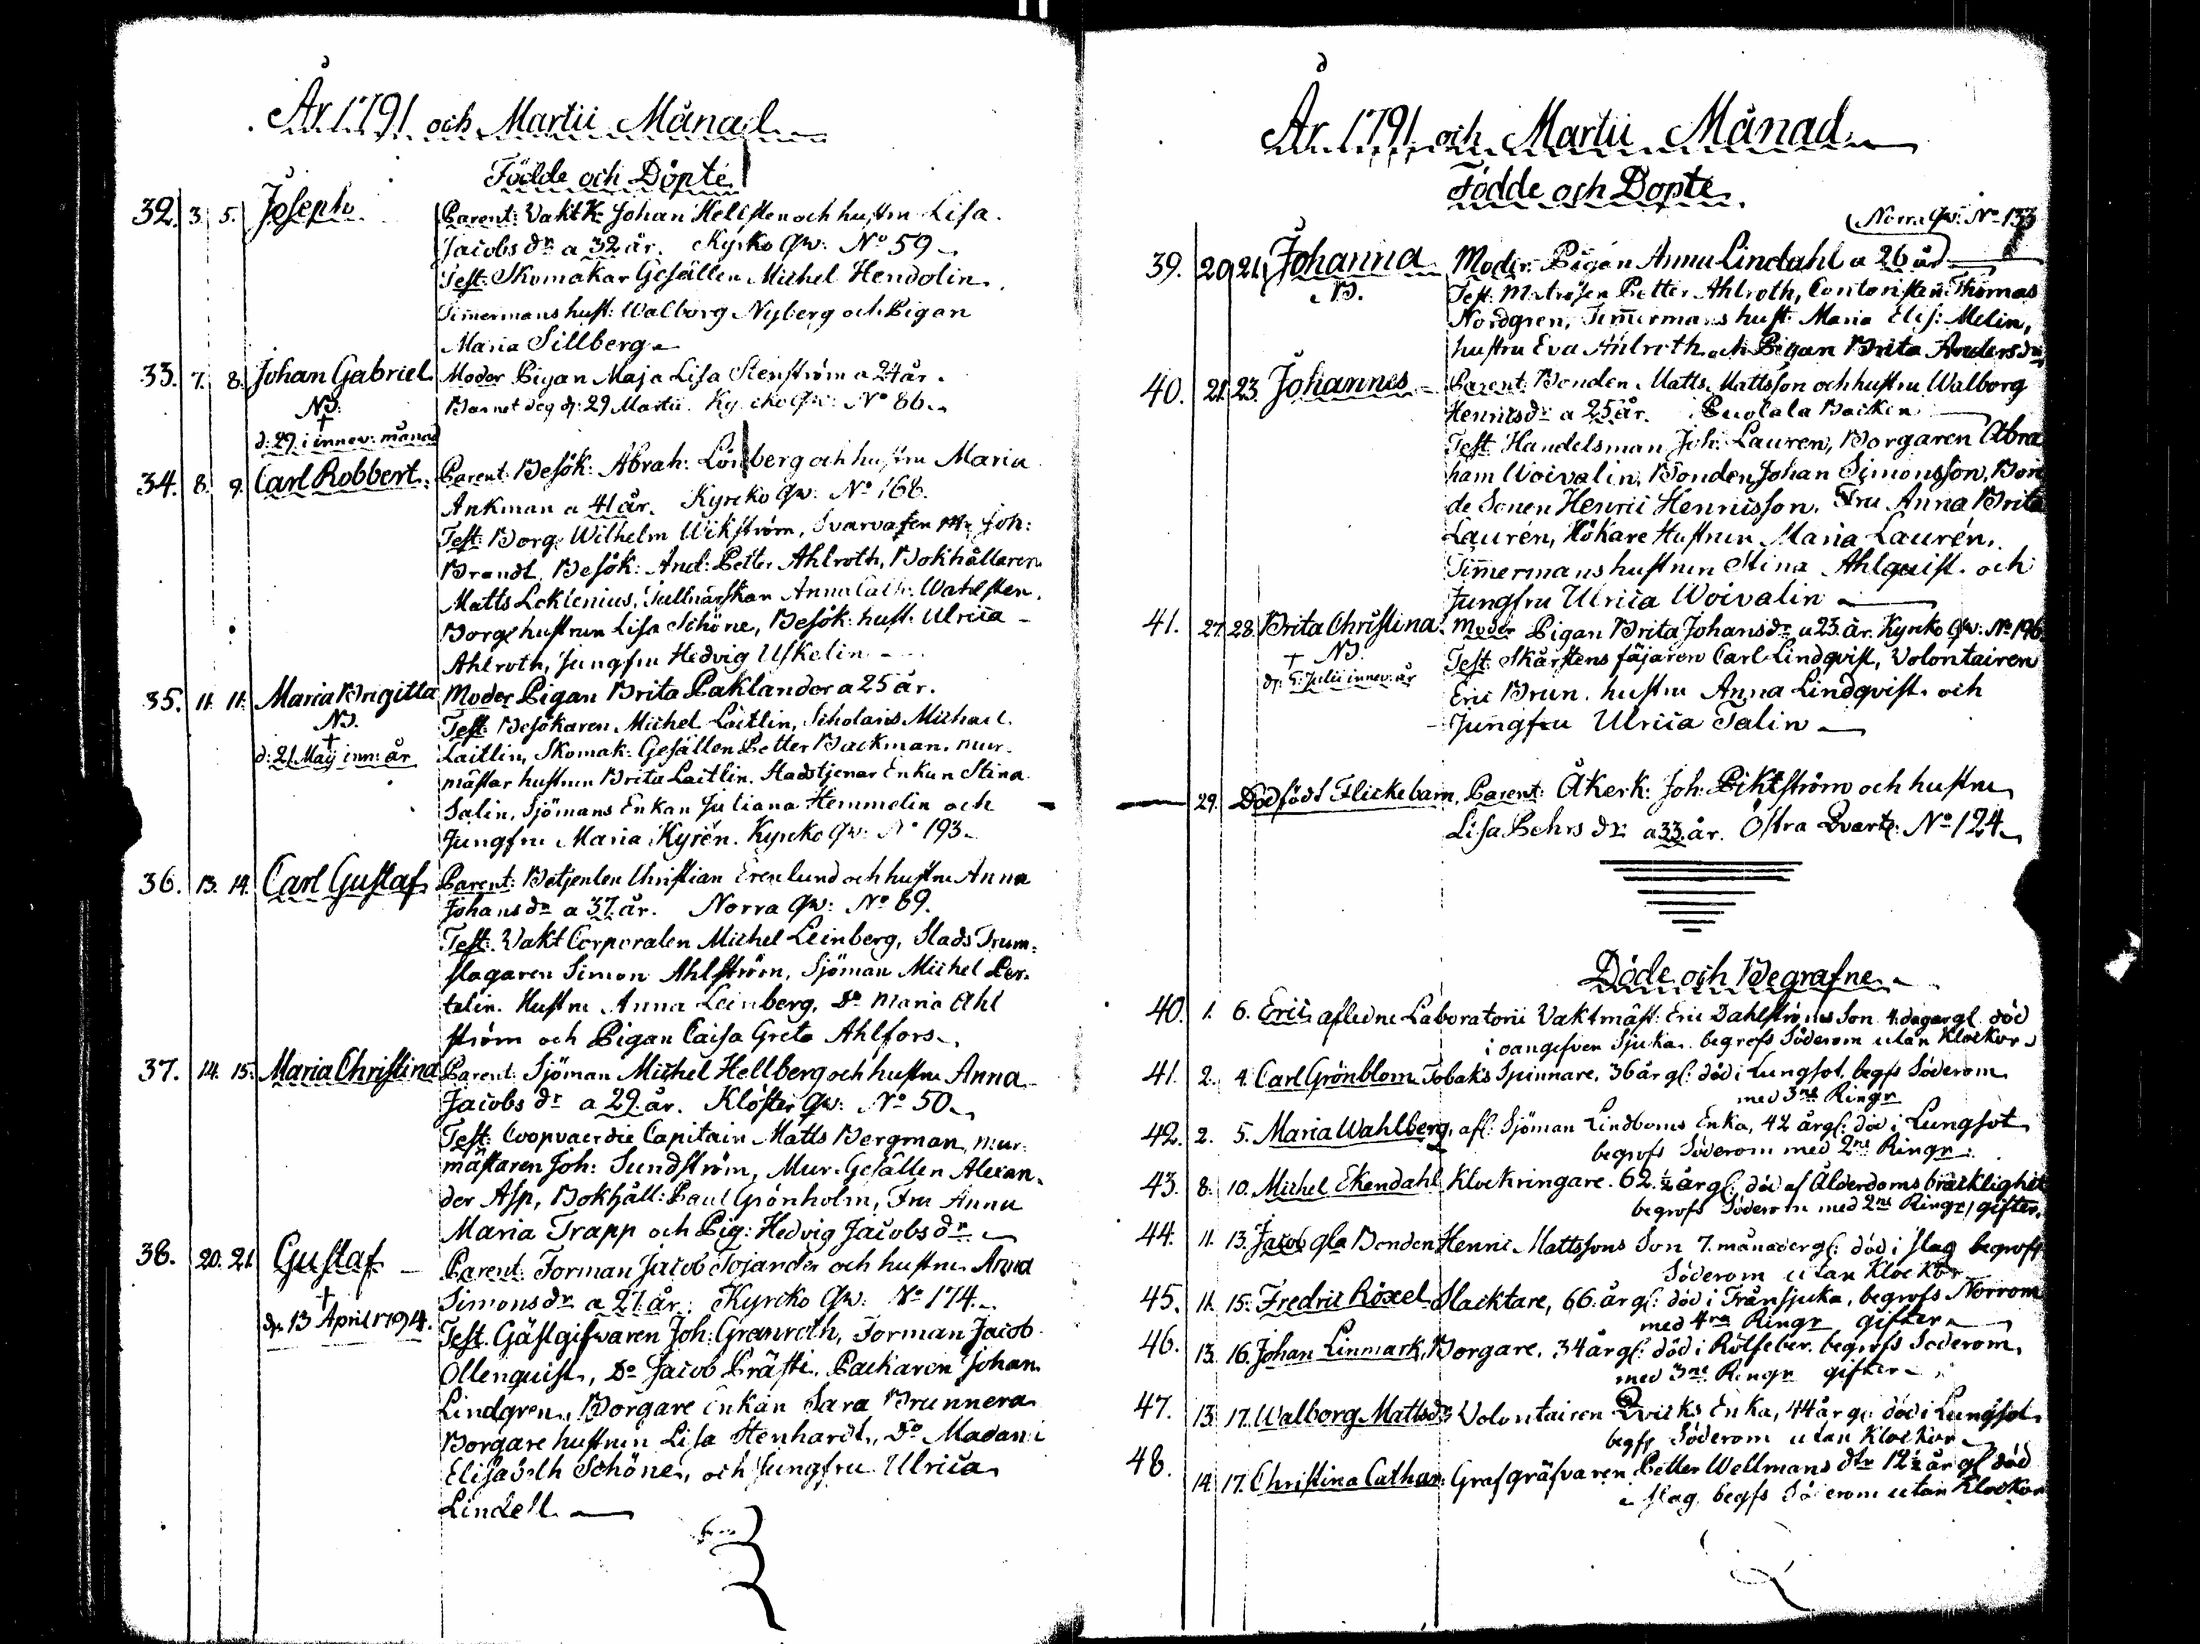 År 1791 och Martii Månad
Födde och Döpte
32. 3. 5. Joseph. Parent: Vakt K: Johan Hellsten och hustru Lisa
Jacobs dr a 32 år. Kyrko Qv: No 59
Test: Skomakar Gesällen Michel Hendolin.
Timmermans hust: Walborg Nyberg och Pigan
Maria Sillberg
33. 7. 8. Johan Gabriel Moder Pigan Maja Lisa Stenström a 24 år.
NB. Barnet dog d: 29 Martii. Kyrcko Qv: No 86.
†
d: 29 i innev: månad
34. 8. 9. Carl Robbert. Parent: Besök: Abrah: Lönberg och hustru Maria
Ankman a 41 år. Kyrcko Qv: No 168.
Test: Borg: Wilhelm Wikström, Svarvaren Mr Joh:
Brandt, Besök: And: Petter Ahlroth, Bokhållaren
Matts Leklenius, Tullnärskan Anna Cath: Wahlsten,
Borge hustrun Lisa Schöne, Besök: hust: Ulrica
Ahlroth, Jungfru Hedvig Uskelin
35. 11. 11. Maria Brigitta Moder Pigan Brita Paklander a 25 år.
NB. Test: Besökaren Michel Laitlin, Scholaris Michael
†
d: 21 Maij inn: år Laitlin, Skomak: Gesällen Petter Backman, mur-
mästar hustrun Brita Laitlin. Stadstjenar Enkan Stina
Salin, Sjömans Enkan Juliana Hemmelin och
Jungfru Maria Kyrén. Kyrcko Qv: No 193.
36. 13. 14. Carl Gustaf Parent: Betjenten Christian Erenlund och hustru Anna
Johans dr a 37 år. Norra Qv: No 89.
Test: Vakt Corporalen Michel Leinberg, Stads Trum-
slagaren Simon Ahlström, Sjöman Michel Per-
telin. Hustru Anna Leinberg, Do Maria Ahl
ström och Pigan Caisa Greta Ahlfors.
37. 14. 15. Maria Christina Parent: Sjöman Michel Hellberg och hustru Anna
Jacobs dr a 29 år. Klöster Qv: No 50
Test: Coopvaerdie Capitain Matts Bergman, mur-
mästaren Joh: Sundström, Mur-Gesällen Alexan-
der Asp, Bokhåll: Paul Grönholm, Fru Anna
Maria Trapp och Pig: Hedvig Jacobs dr
38. 20. 21. Gustaf Parent: Forman Jacob Tojander och hustru Anna
†
Simons dr a 27 år. Kyrcko Qv: No 174.
d: 13 April 1794. Test. Gästgifvaren Joh: Granroth, Forman Jacob
Ollenquist, Do Jacob Prästi, Packaren Johan
Lindgren, Borgare enkan Sara Brunnera
Borgare hustrun Lisa Stenhardt, Do Madam
Elisabeth Schöne, och Jungfru Ulrica
Lindell
År 1791 och Martii Månad
Födde och Döpte
Norra Qv: No 133
39. 20. 21. Johanna Moder Pigan Anna Lindahl a 26 år
NB. Test: Matrosen Petter Ahlroth, Contoristen Thomas
Nordgren, Timmermans hust: Maria Elis: Melin,
hustru Eva Ahlroth och Pigan Brita Andersdr
40. 21. 23. Johannes Parent: Bonden Matts Mattsson och hustru Walborg
Henricsdr a 25 år. Puolala Backen
Test. Handelsman Joh: Lauren, Borgaren Abra
ham Woivalin, Bonden Johan Simonsson, Bon
de Sonen Henric Henricsson. Fru Anna Brita
Laurén, Hökare Hustrun Maria Laurén.
Timmermans hustrun Stina Ahlquist och
Jungfru Ulrica Woivalin
41. 27. 28. Brita Christina. Moder Pigan Brita Johansdr a 23 år. Kyrcko Qv: No 196
† NB. Test. Skårstens fäjaren Carl Lindqvist, Volontairen
d: 5: Julii innev: år Eric Brun, hustru Anna Lindqvist och
Jungfru Ulrica Talin
29. Dödfödt Flickebarn. Parent: Åkerk: Joh: Pikström och hustru
Lisa Behrs dr a 33 år. Östra Qvart: No 124
Döde och Begrafne
40. 1. 6. Eric afledne Laboratorii Vaktmäst: Eric Dahlströms Son 4. dagar gl. död
i oangifven Sjuka. begrofs Söderom utan Klockor
41. 2. 4. Carl Grönblom Tobaks Spinnare, 36 år gl: död i Lungsot. begfs Söderom
med 3ne Ringr
42. 2. 5. Maria Wahlberg, afl: Sjöman Lindboms Enka, 42 år gl: död i Lungsot
begrofs Söderom med 2ne Ringr.
43. 8. 10. Michel Ekendahl Klockringare. 62 ½ år gl: död af Ålderdoms bräcklighet
begrofs Söderom med 2ne Ringr, gifter.
44. 11. 13. Jacob gla Bonden Henric Mattssons Son 7. månader gl: död i slag begrofs
Söderom utan Klockor
45. 11. 15. Fredric Röxel Slacktare, 66. år gl: död i Trånsjuka, begrofs Norrom
med 4ra Ringr gifter
46. 13. 16. Johan Linmark, Borgare, 34 år gl: död i Rötfeber. begrofs Söderom
med 3ne Ringr gifter
47. 13. 17. Walborg Mattsdr Volontairen Qvicks Enka, 44 år gl: död i Lungsot
begfs Söderom utan Klockor
48. 14. 17. Christina Cathar: Grafgräfvaren Petter Wellmans dtr 12 ½ år gl död
i slag. begfs Söderom utan Klockor